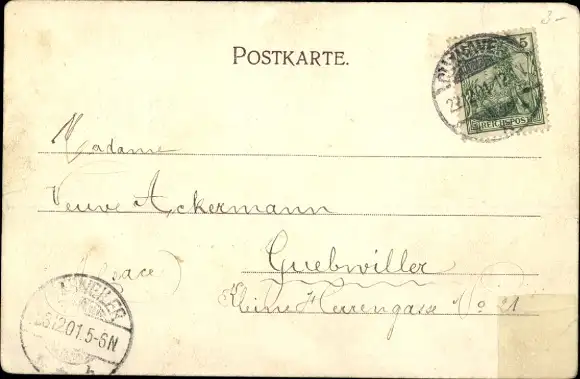 3-
POSTKARTE.
5
REICHSPOST
Madame
Veuve Ackermann
Guebwiller
(Alsace)
Kleine Herrengasse No 21
.12.01.5-6N